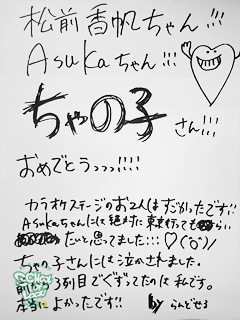 松前香帆ちゃん!!!
Asukaちゃん!!!
ちゃの子さん!!!
おめでとうっっっ!!!!
カラオケステージのお2人はすごかったです!!
Asukaちゃんには絶対に東京行ってもらい
たいと思ってました...!♡(^o^)/
ちゃの子さんには泣かされました。
前から3列目でぐずってたのは私です。
本当によかったです!!
by らんどせる